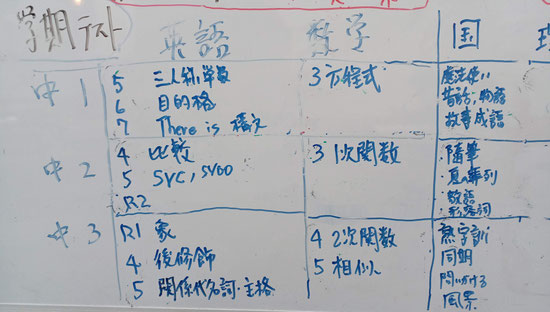 学期テスト 英語 数学 国
中1
5 三人称単数
6 目的格
7 There is 構文
3 方程式
魔法使い
昔話・物語
故事成語
中2
4 比較
5 SVC, SVOO
R2
3 1次関数
・随筆
・敬語
・形容詞
中3
R1 象
4 後修飾
5 関係代名詞・主格
4 2次関数
5 相似
熟字訓
同朋
問いかける
風景